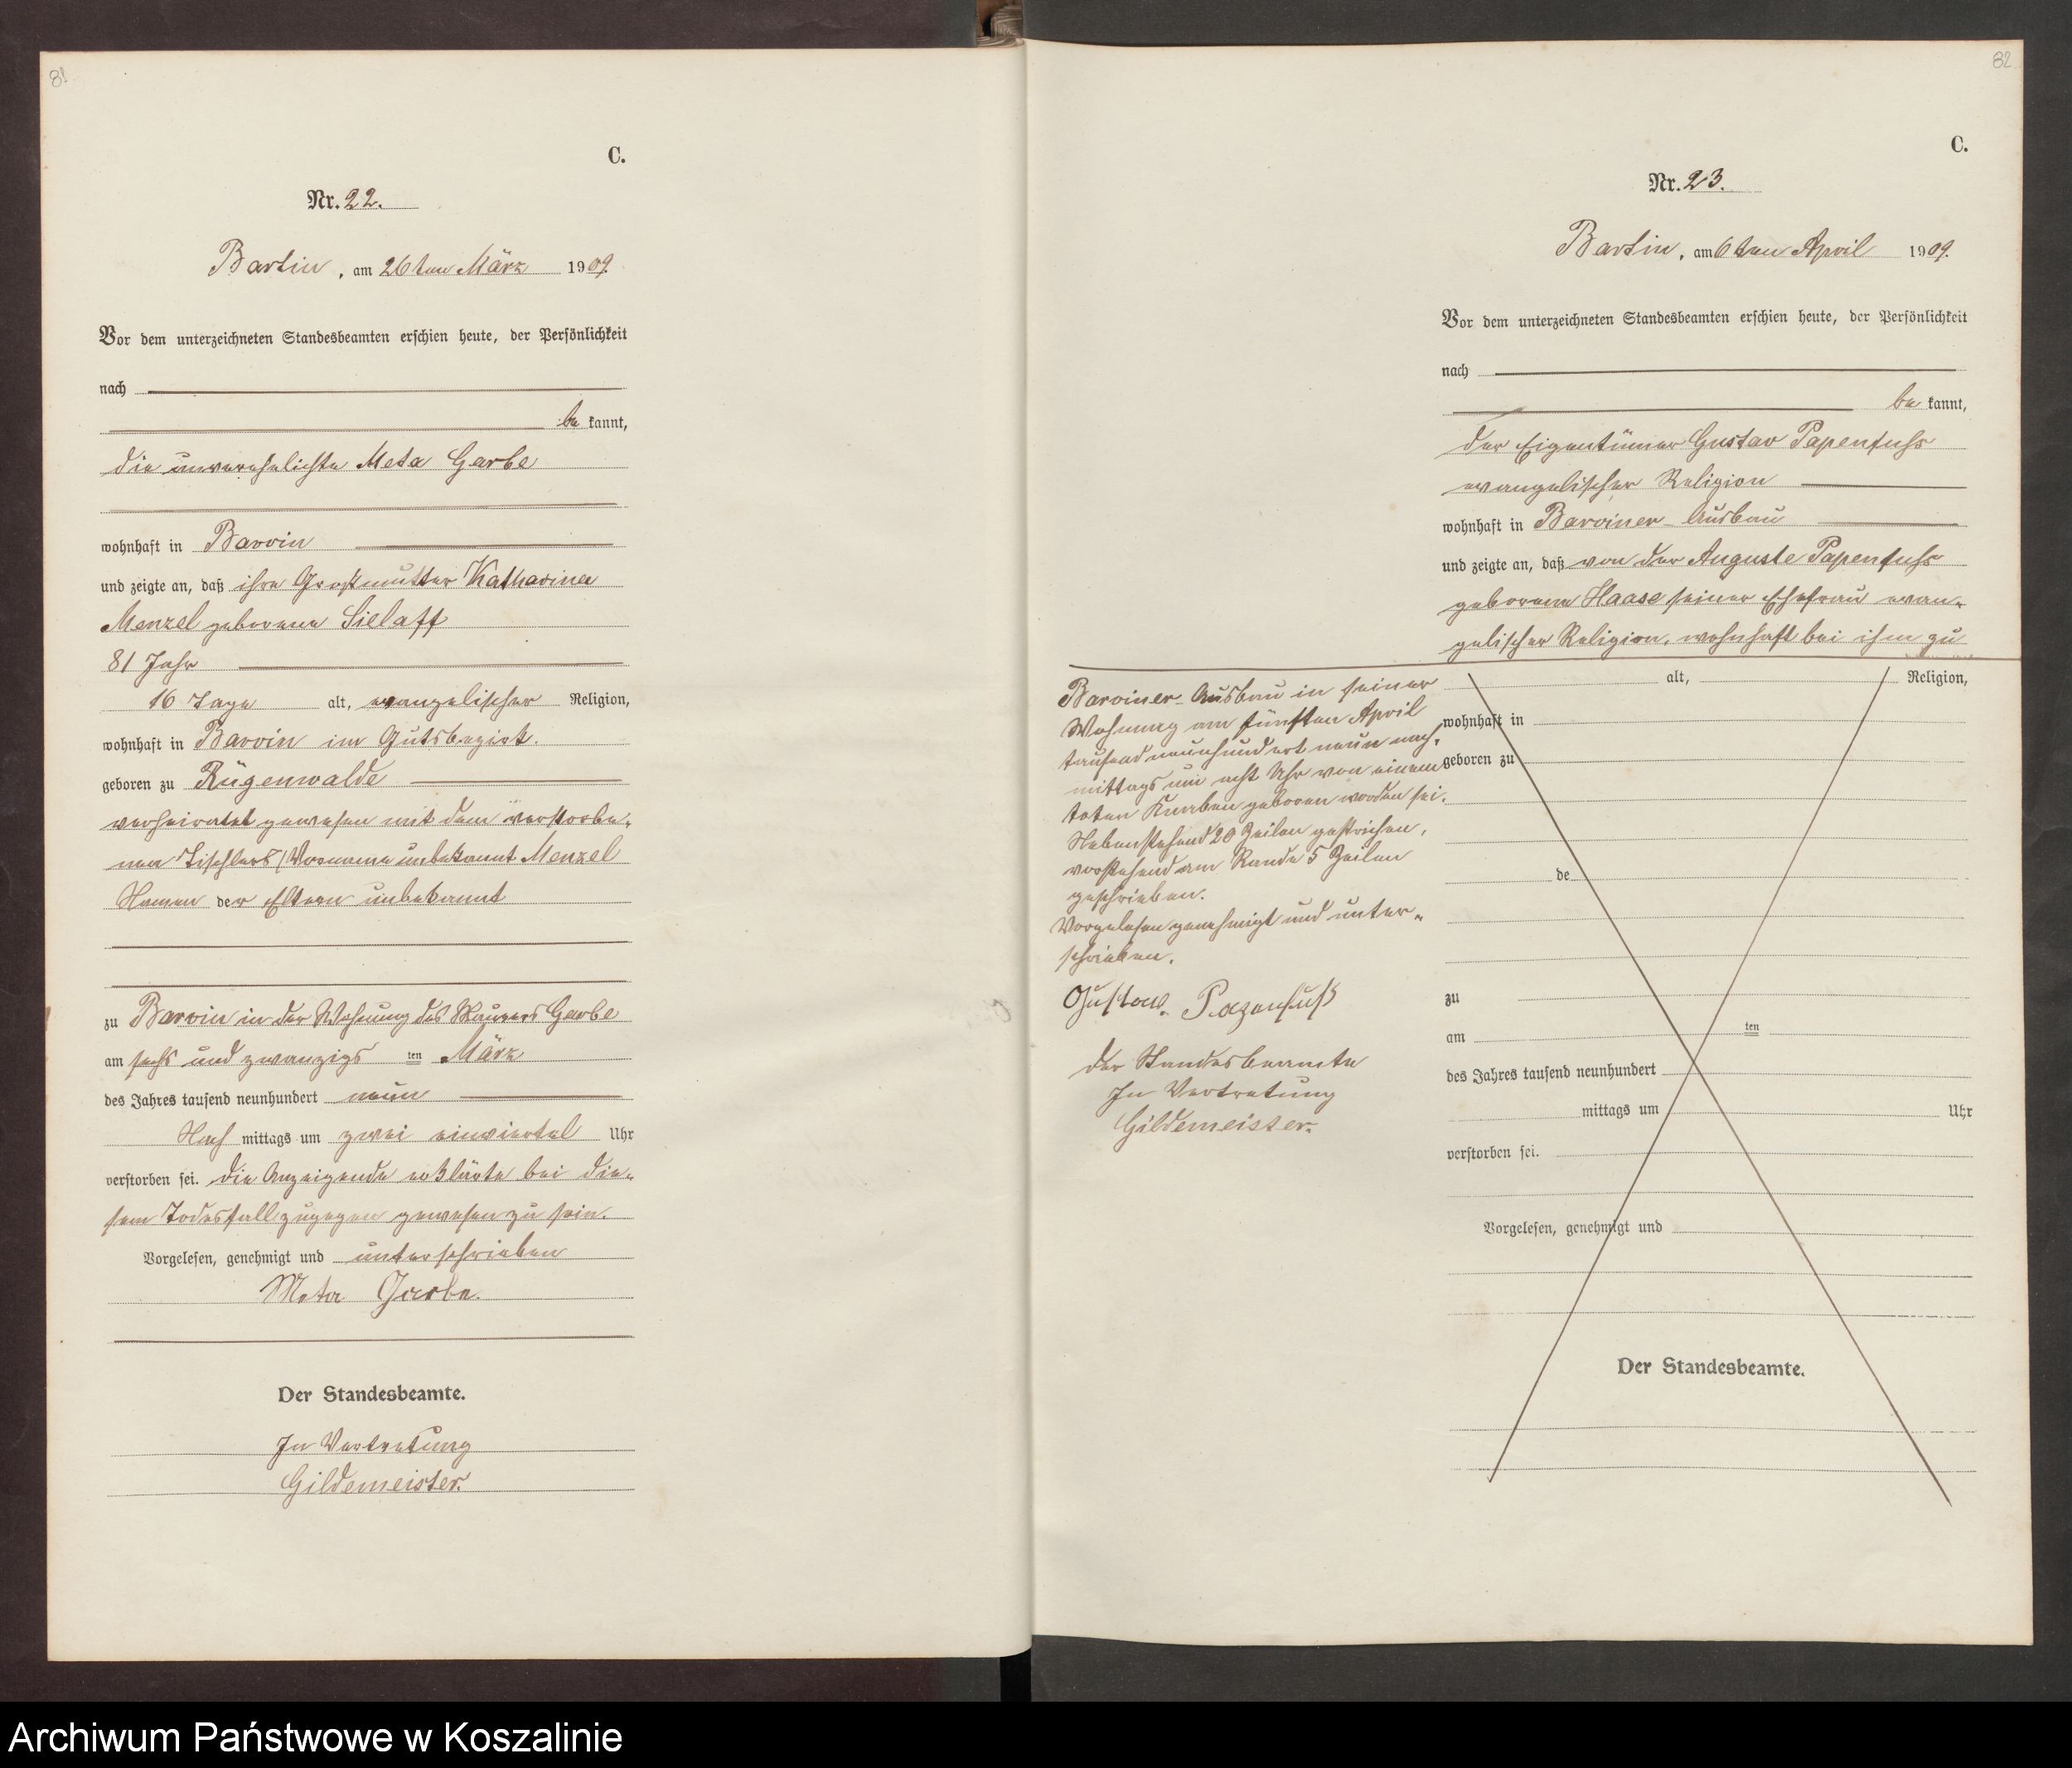 81
C.
Nr. 22.
Bartin, am 26ten März 1909.
Vor dem unterzeichneten Standesbeamten erschien heute, der Persönlichkeit
nach
be kannt,
die unverehelichte Meta Garbe
wohnhaft in Barvin
und zeigte an, daß ihre Großmutter Katharina
Menzel geborene Sielaff
81 Jahr
16 Tage alt, evangelischer Religion,
wohnhaft in Barvin im Gutsbezirk.
geboren zu Rügenwalde
verheiratet gewesen mit dem verstorbe-
nen Tischlers (Vorname unbekannt Menzel
Namen der Eltern unbekannt
zu Barvin in der Wohnung des Maurers Garbe
am sechs und zwanzigs ten März
des Jahres tausend neunhundert neun
Nach mittags um zwei einviertel Uhr
verstorben sei. Die Anzeigende erklärte bei die-
sem Todesfall zugegen gewesen zu sein.
Vorgelesen, genehmigt und unterschrieben
Meta Garbe.
Der Standesbeamte.
In Vertretung
Gildemeister.
82
C.
Nr. 23.
Bartin, am 6ten April 1909.
Vor dem unterzeichneten Standesbeamten erschien heute, der Persönlichkeit
nach
be kannt,
der Eigentümer Gustav Papenfuhs
evangelischer Religion
wohnhaft in Barviner-Ausbau
und zeigte an, daß von der Auguste Papenfuhs
geborene Haase seiner Ehefrau evan-
gelischer Religion, wohnhaft bei ihm zu
Barviner-Ausbau in seiner
Wohnung am fünften April
tausend neunhundert neun nach-
mittags um acht Uhr von einem
toten Knaben geboren worden sei.
Nebenstehend 20 Zeilen gestrichen,
vorstehend am Rande 5 Zeilen
geschrieben.
Vorgelesen genehmigt und unter-
schrieben.
Gustav. Papenfuß
Der Standesbeamte
In Vertretung
Gildemeister.
alt, Religion,
wohnhaft in
geboren zu
de
zu
am ten
des Jahres tausend neunhundert
mittags um Uhr
verstorben sei.
Vorgelesen, genehmigt und
Der Standesbeamte.
Archiwum Państwowe w Koszalinie